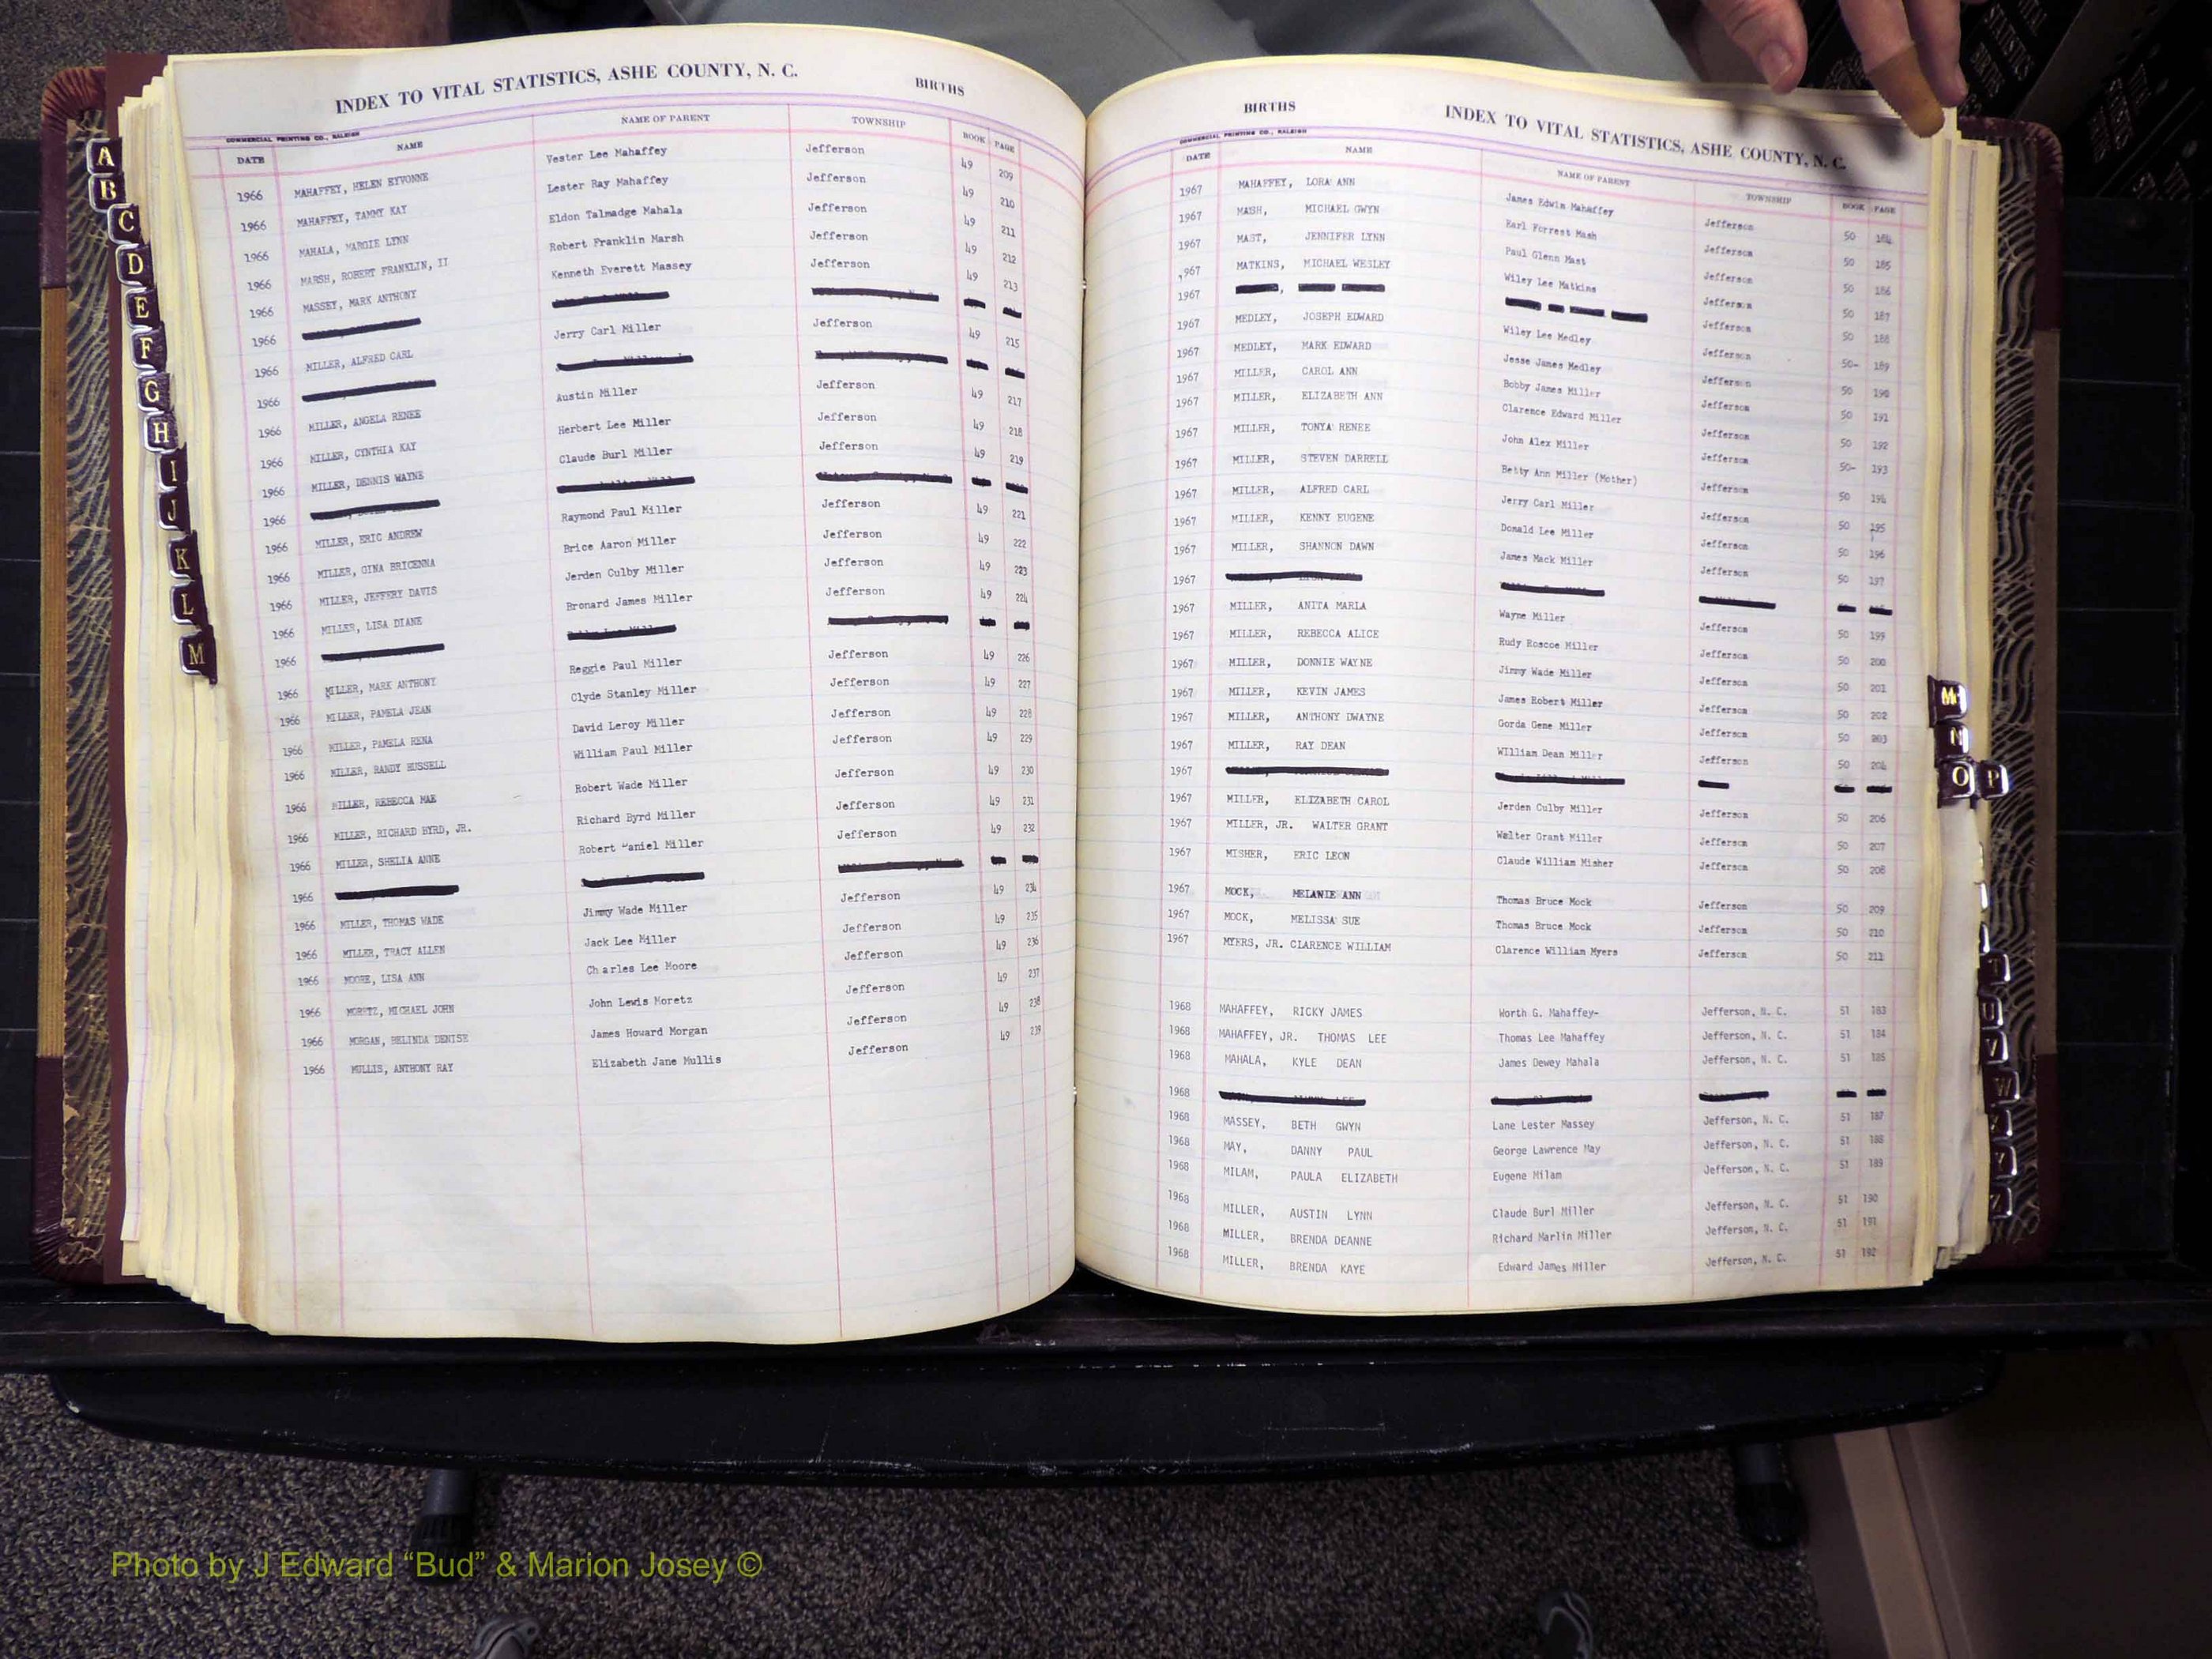 INDEX TO VITAL STATISTICS, ASHE COUNTY, N. C. BIRTHS
COMMERCIAL PRINTING CO., RALEIGH
DATE NAME NAME OF PARENT TOWNSHIP BOOK PAGE
1966 MAHAFFEY, HELEN EYVONNE Vester Lee Mahaffey Jefferson 49 209
1966 MAHAFFEY, TAMMY KAY Lester Ray Mahaffey Jefferson 49 210
1966 MAHALA, MARGIE LYNN Eldon Talmadge Mahala Jefferson 49 211
1966 MARSH, ROBERT FRANKLIN, II Robert Franklin Marsh Jefferson 49 212
1966 MASSEY, MARK ANTHONY Kenneth Everett Massey Jefferson 49 213
1966
1966 MILLER, ALFRED CARL Jerry Carl Miller Jefferson 49 215
1966
1966 MILLER, ANGELA RENEE Austin Miller Jefferson 49 217
1966 MILLER, CYNTHIA KAY Herbert Lee Miller Jefferson 49 218
1966 MILLER, DENNIS WAYNE Claude Burl Miller Jefferson 49 219
1966
1966 MILLER, ERIC ANDREW Raymond Paul Miller Jefferson 49 221
1966 MILLER, GINA BRICENNA Brice Aaron Miller Jefferson 49 222
1966 MILLER, JEFFERY DAVIS Jerden Culby Miller Jefferson 49 223
1966 MILLER, LISA DIANE Bronard James Miller Jefferson 49 224
1966
1966 MILLER, MARK ANTHONY Reggie Paul Miller Jefferson 49 226
1966 MILLER, PAMELA JEAN Clyde Stanley Miller Jefferson 49 227
1966 MILLER, PAMELA RENA David Leroy Miller Jefferson 49 228
1966 MILLER, RANDY RUSSELL William Paul Miller Jefferson 49 229
1966 MILLER, REBECCA MAE Robert Wade Miller Jefferson 49 230
1966 MILLER, RICHARD BYRD, JR. Richard Byrd Miller Jefferson 49 231
1966 MILLER, SHELIA ANNE Robert Daniel Miller Jefferson 49 232
1966
1966 MILLER, THOMAS WADE Jimmy Wade Miller Jefferson 49 234
1966 MILLER, TRACY ALLEN Jack Lee Miller Jefferson 49 235
1966 MOORE, LISA ANN Charles Lee Moore Jefferson 49 236
1966 MORETZ, MICHAEL JOHN John Lewis Moretz Jefferson 49 237
1966 MORGAN, BELINDA DENISE James Howard Morgan Jefferson 49 238
1966 MULLIS, ANTHONY RAY Elizabeth Jane Mullis Jefferson 49 239
BIRTHS INDEX TO VITAL STATISTICS, ASHE COUNTY, N. C.
COMMERCIAL PRINTING CO., RALEIGH
DATE NAME NAME OF PARENT TOWNSHIP BOOK PAGE
1967 MAHAFFEY, LORA ANN James Edwin Mahaffey Jefferson 50 184
1967 MASH, MICHAEL GWYN Earl Forrest Mash Jefferson 50 185
1967 MAST, JENNIFER LYNN Paul Glenn Mast Jefferson 50 186
1967 MATKINS, MICHAEL WESLEY Wiley Lee Matkins Jefferson 50 187
1967 Jefferson 50 188
1967 MEDLEY, JOSEPH EDWARD Wiley Lee Medley Jefferson 50- 189
1967 MEDLEY, MARK EDWARD Jesse James Medley Jefferson 50 190
1967 MILLER, CAROL ANN Bobby James Miller Jefferson 50 191
1967 MILLER, ELIZABETH ANN Clarence Edward Miller Jefferson 50 192
1967 MILLER, TONYA RENEE John Alex Miller Jefferson 50- 193
1967 MILLER, STEVEN DARRELL Betty Ann Miller (Mother) Jefferson 50 194
1967 MILLER, ALFRED CARL Jerry Carl Miller Jefferson 50 195
1967 MILLER, KENNY EUGENE Donald Lee Miller Jefferson 50 196
1967 MILLER, SHANNON DAWN James Mack Miller Jefferson 50 197
1967
1967 MILLER, ANITA MARIA Wayne Miller Jefferson 50 199
1967 MILLER, REBECCA ALICE Rudy Roscoe Miller Jefferson 50 200
1967 MILLER, DONNIE WAYNE Jimmy Wade Miller Jefferson 50 201
1967 MILLER, KEVIN JAMES James Robert Miller Jefferson 50 202
1967 MILLER, ANTHONY DWAYNE Gorda Gene Miller Jefferson 50 203
1967 MILLER, RAY DEAN William Dean Miller Jefferson 50 204
1967
1967 MILLER, ELIZABETH CAROL Jerden Culby Miller Jefferson 50 206
1967 MILLER, JR. WALTER GRANT Walter Grant Miller Jefferson 50 207
1967 MISHER, ERIC LEON Claude William Misher Jefferson 50 208
1967 MOCK, MELANIE ANN Thomas Bruce Mock Jefferson 50 209
1967 MOCK, MELISSA SUE Thomas Bruce Mock Jefferson 50 210
1967 MYERS, JR. CLARENCE WILLIAM Clarence William Myers Jefferson 50 211
1968 MAHAFFEY, RICKY JAMES Worth G. Mahaffey- Jefferson, N. C. 51 183
1968 MAHAFFEY, JR. THOMAS LEE Thomas Lee Mahaffey Jefferson, N. C. 51 184
1968 MAHALA, KYLE DEAN James Dewey Mahala Jefferson, N. C. 51 185
1968
1968 MASSEY, BETH GWYN Lane Lester Massey Jefferson, N. C. 51 187
1968 MAY, DANNY PAUL George Lawrence May Jefferson, N. C. 51 188
1968 MILAM, PAULA ELIZABETH Eugene Milam Jefferson, N. C. 51 189
1968 MILLER, AUSTIN LYNN Claude Burl Miller Jefferson, N. C. 51 190
1968 MILLER, BRENDA DEANNE Richard Marlin Miller Jefferson, N. C. 51 191
1968 MILLER, BRENDA KAYE Edward James Miller Jefferson, N. C. 51 192
A
B
C
D
E
F
G
H
I
J
K
L
M
Mc
N
O P
T
U
V
W
Y
Z
Photo by J Edward “Bud” & Marion Josey ©